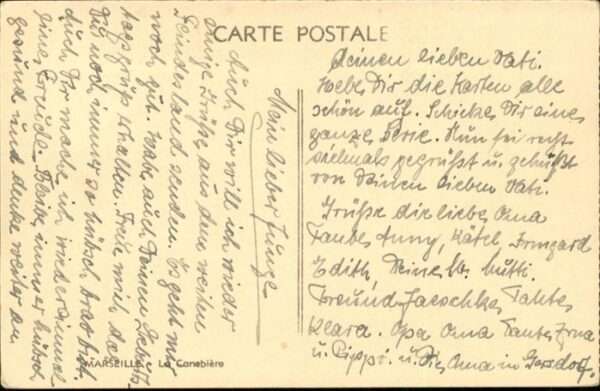 CARTE POSTALE
Mein lieber Junge
Auch Dir will ich wieder
einige Grüße aus dem weiten
Feindesland senden. Es geht mir
noch gut. Habe auch Deinen Geburts-
tagsgruß erhalten. Freue mich, daß
Du noch immer so hübsch brav bist.
Auch Dir mache ich wieder einmal
eine Freude. Bleibe immer hübsch
gesund und denke weiter an
Deinen lieben Vati.
Hebe Dir die Karten alle
schön auf. Schicke Dir eine
ganze Serie. Nun sei recht
vielmals gegrüßt u. geküßt
von Deinen lieben Vati.
Grüße die liebe Oma
Tante Anny, Kätel, Irmgard
Edith, Deine lb. Mutti.
Freund Jaeschke, Tante
Klara. Opa Oma Tante Erna
u. Pippi. u. Die Oma in Gersdorf.
MARSEILLE La Canebière